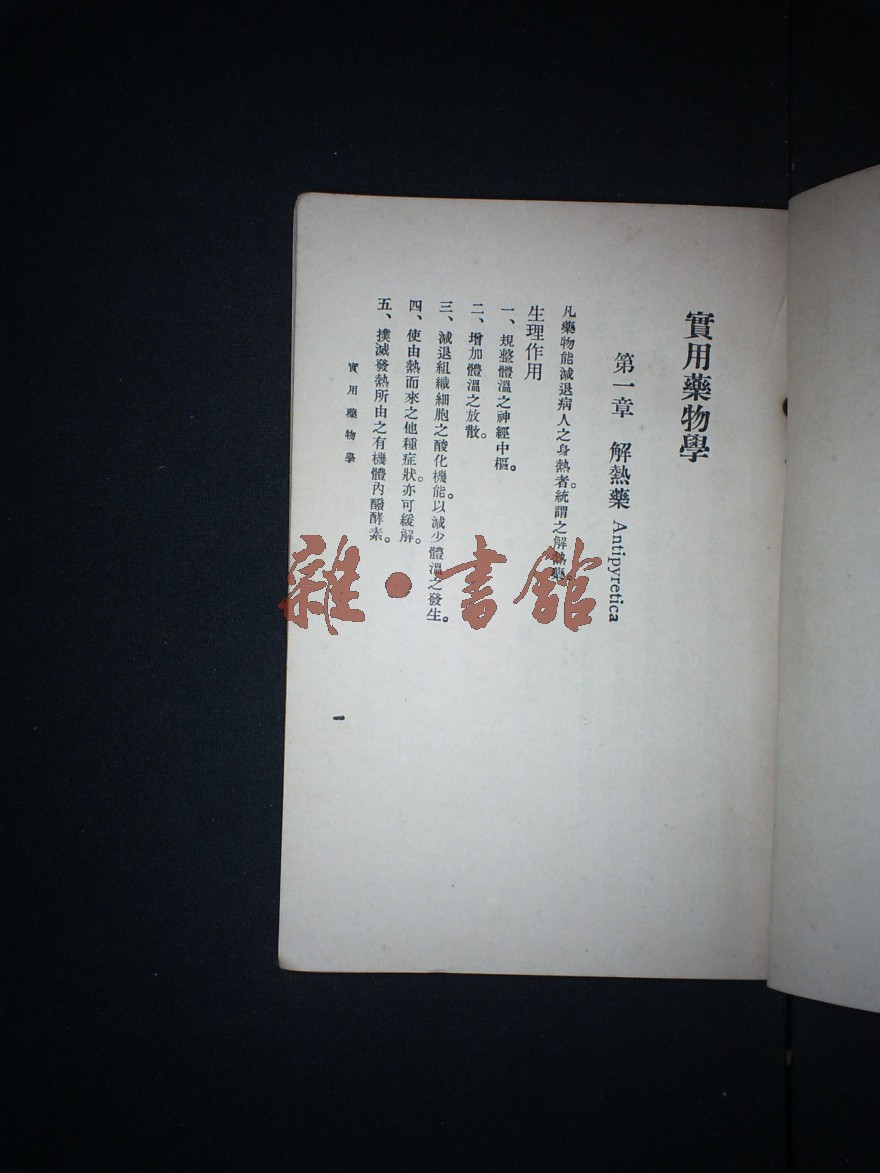 實用藥物學
第一章 解熱藥 Antipyretica
凡藥物能減退病人之身熱者。統謂之解熱藥。
生理作用
一、規整體溫之神經中樞。
二、增加體溫之放散。
三、減退組織細胞之酸化機能。以減少體溫之發生。
四、使由熱而來之他種症狀。亦可緩解。
五、撲滅發熱所由之有機體內醱酵素。
實用藥物學
一
雜·書館